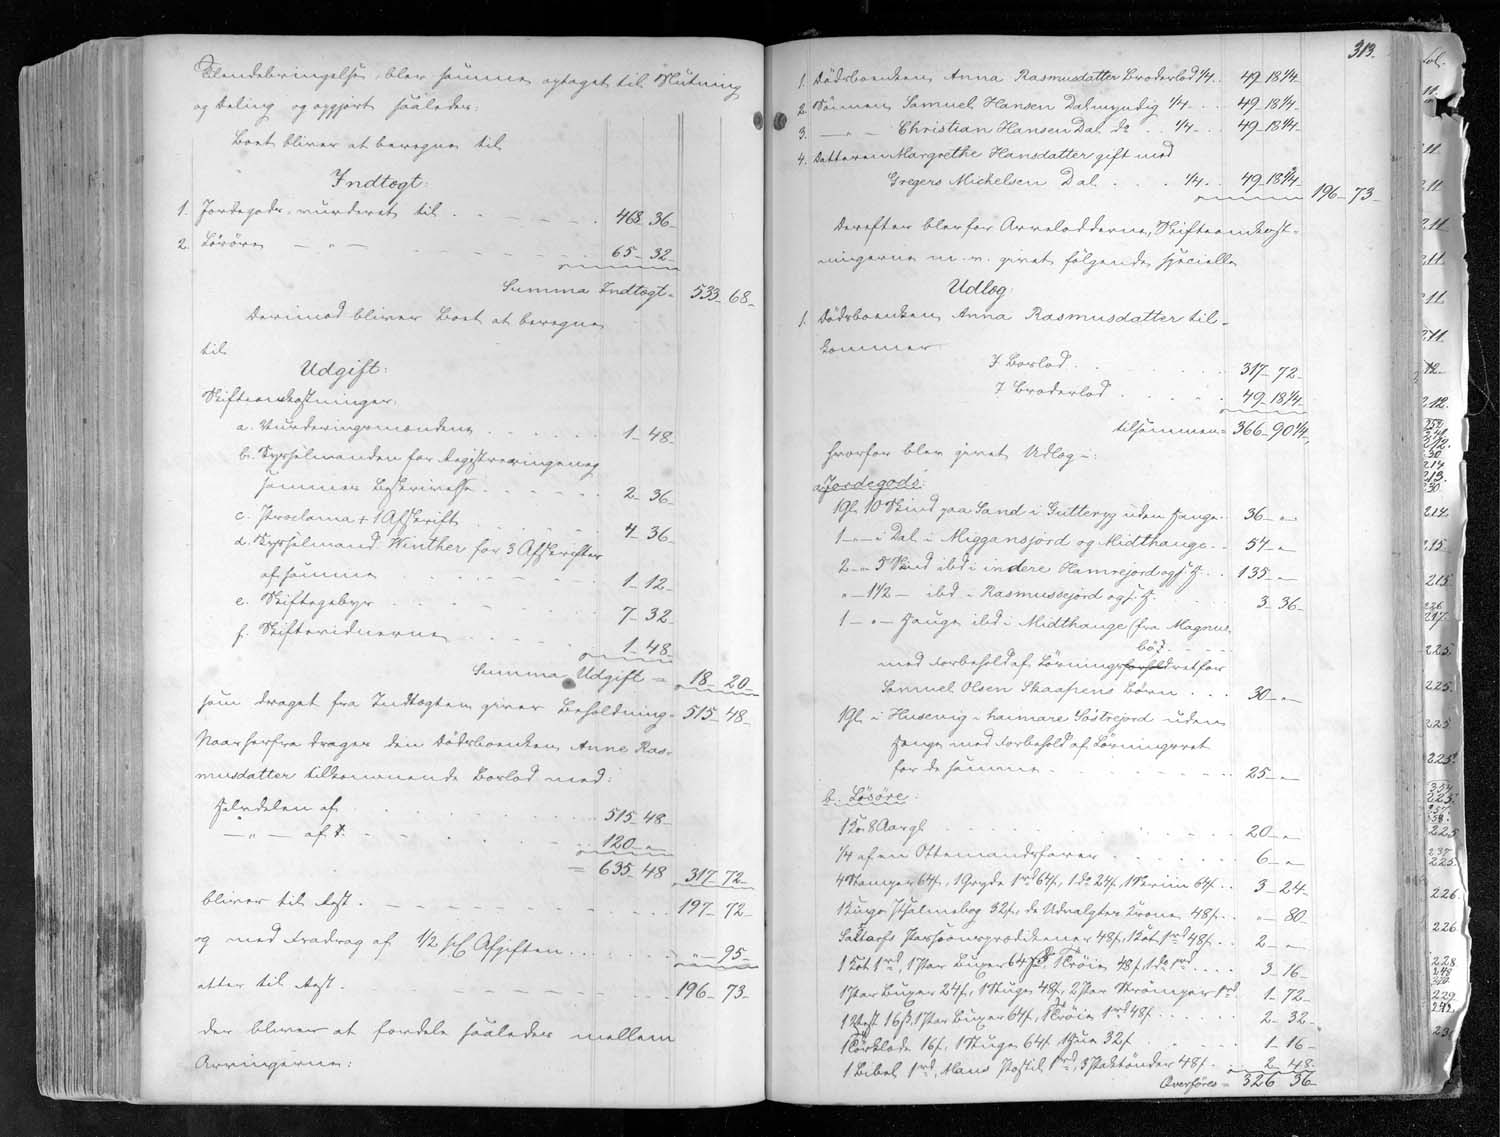 Tilendebringelse, blev samme optaget til Slutning
og Deling og opgjort saaledes:
Boet bliver at beregne til
Indtægt:
1. Jordegods, vurderet til . 468 36
2. Løsøre — " — 65 32
Summa Indtægt 533 68
Derimod bliver Boet at beregne
til
Udgift:
Skifteomkostninger:
a. Vurderingsmændene 1 48
b. Sysselmanden for Registreringen og
sammes Beskrivelse 2 36
c. Proclama + 1 Afskrift 4 36
d. Sysselmand Winther for 3 Afskrifter
af samme 1 12
e. Skiftegebyr 7 32
f. Skiftevidnerne 1 48
Summa Udgift = 18 20
som draget fra Indtægten giver Beholdning 515 48
Naar herfra drages den Dødsboenken Anne Ras-
musdatter tilkommende Boslod med:
Halvdelen af 515 48
— " — af 120 "
= 635 48 317 72
bliver til Rest. 197 72
og med Fradrag af 1/2 pC Afgiften " 95
atter til Rest. 196 73
der bliver at fordele saaledes mellem
Arvingerne:
313.
1. Dødsboenken Anna Rasmusdatter Broderlod 1/4 49 18 1/4
2. Sønnen Samuel Hansen Dal myndig 1/4 49 18 1/4
3. — " — Christian Hansen Dal do 1/4 49 18 1/4
4. Datteren Margrethe Hansdatter gift med
Gregers Michelsen Dal 1/4 49 18 1/4 196 73
Derefter blev for Arvelodderne, Skifteomkost-
ningerne m. v. givet følgende specielle
Udlæg
1. Dødsboenken Anna Rasmusdatter til-
kommer
I Boslod 317 72
I Broderlod 49 18 1/4
tilsammen = 366 90 1/4
hvorfor blev givet Udlæg:
a. Jordegods:
1 Gl 10 Skind paa Sand i uden Hauge 36 "
1 — " i Dal i Miggansjord og Midthauge 54 "
2 — " 5 Skind ibd i indere Hamrejord og i H. 135 "
" — 1 1/2 — ibd i Rasmussejord og i H. 3 36
1 — " — Hauge ibd i Midthauge (fra Magnus
med Forbehold af Løsningsret for
Samuel Olsen Skaapens Børn 30 "
1 Gl. i Husevig i haimare Søstrejord uden
Hauge med Forbehold af Løsningsret
for de samme 25 "
b. Løsøre:
1 Ko 8 Aar gl. 20 "
1/4 af en Ottemandsfarer 6 "
4 Stamper 64 s, 1 Gryde 1 rd 64 s, 1 do 24 s, 1 64 s 3 24
1 Kingo Psalmebog 32 s, de Udvalgtes Krone 48 s " 80
Passionsprædikener 48 s, 1 rd 48 s 2 "
1 rd, 1 Par Buxer 64 s, 1 Trøie 48 s, 1 do 3 16
1 Par Buxer 24 s, 1 48 s, 2 Par Strømper 1 rd 1 72
1 Vest 16 s, 1 Par Buxer 64 s, 1 Trøie 1 rd 48 s 2 32
1 Tørklæde 16 s, 1 64 s, 1 Hue 32 s 1 16
1 Bibel 1 rd, Postil 1 rd, 3 48 s 2 48
Overføres = 326 36